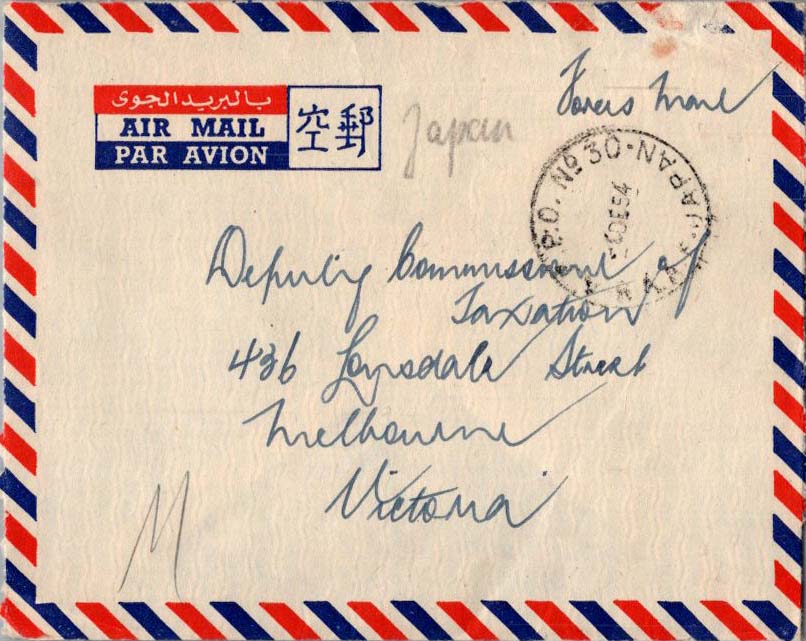 Forces Mail
بالبريد الجوى
AIR MAIL
PAR AVION
空郵
Japan
P.O. No 30. JAPAN
DE 54
Deputy Commissioner of
Taxation
436 Lonsdale Street
Melbourne
Victoria
M